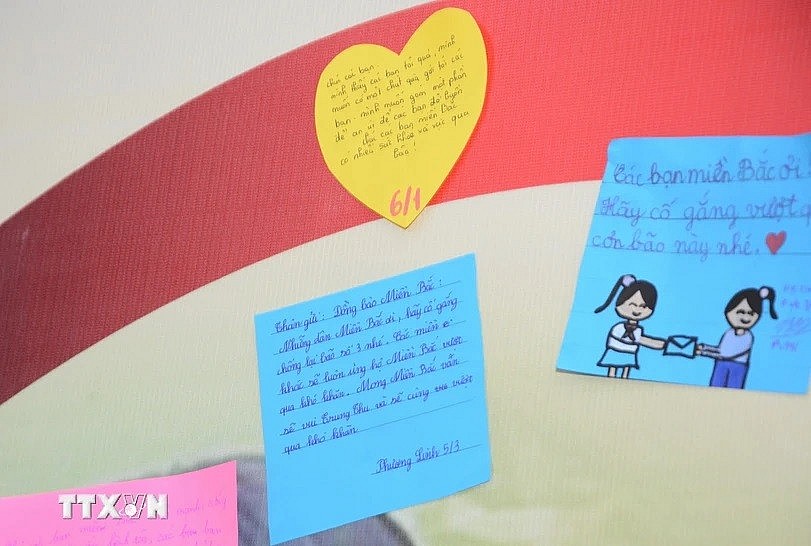 chúc các bạn
mình thấy các bạn tội quá, mình
muốn có một chút quà gởi tới các
bạn. mình muốn gom một phần
để an ủi để các bạn đỡ buồn
chúc các bạn miền Bắc
có nhiều sức khỏe và vượt qua
bão!
6/1
Các bạn miền Bắc ơi
Hãy cố gắng vượt q
cơn bão này nhé.
Thân gửi: Đồng bào Miền Bắc:
Những dân Miền Bắc ơi, hãy cố gắng
chống lại bão số 3 nhé. Các miền
khác sẽ luôn ủng hộ Miền Bắc vượt
qua khó khăn. Mong Miền Bắc vẫn
sẽ vui Trung Thu và sẽ cùng vượt
qua khó khăn
Phương Linh 5/3
TTXVN